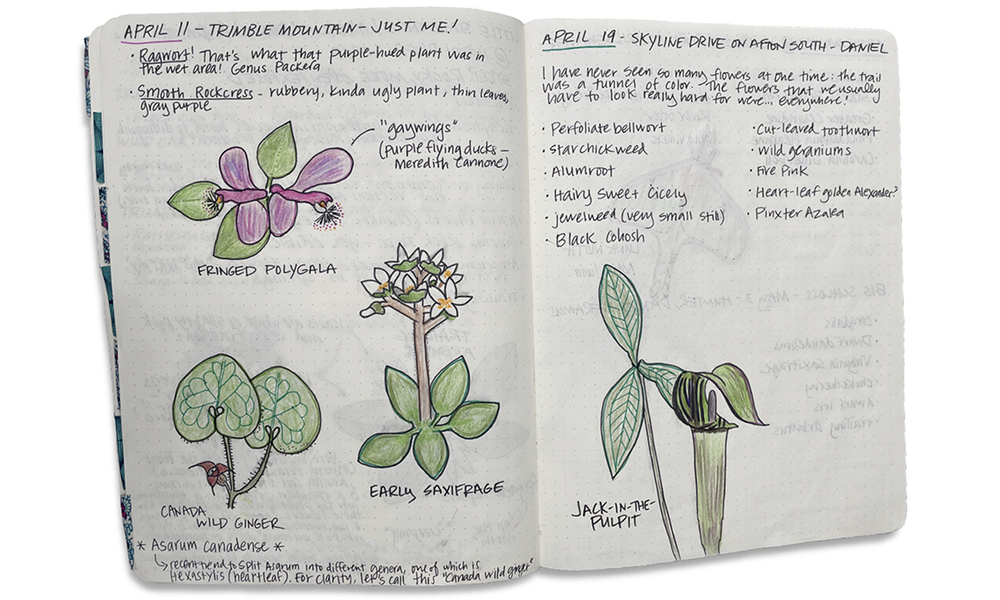 APRIL 11 - TRIMBLE MOUNTAIN - JUST ME!
• Ragwort! That's what that purple-hued plant was in
the wet area! Genus Packera
• Smooth Rockcress - rubbery, kinda ugly plant, thin leaves,
gray purple
"gaywings"
(purple flying ducks -
Meredith Cannone)
FRINGED POLYGALA
EARLY SAXIFRAGE
CANADA
WILD GINGER
* Asarum canadense *
recent trend to split Asarum into different genera, one of which is
Hexastylis (heartleaf). For clarity, let's call this "Canada wild ginger"
APRIL 19 - SKYLINE DRIVE ON AFTON SOUTH - DANIEL
I have never seen so many flowers at one time: the trail
was a tunnel of color. The flowers that we usually
have to look really hard for were... everywhere!
• Perfoliate bellwort
• Star chickweed
• Alumroot
• Hairy Sweet Cicely
• jewelweed (very small still)
• Black Cohosh
• Cut-leaved toothwort
• Wild geraniums
• Fire Pink
• Heart-leaf golden Alexander?
• Pinxter Azalea
JACK-IN-THE-
PULPIT